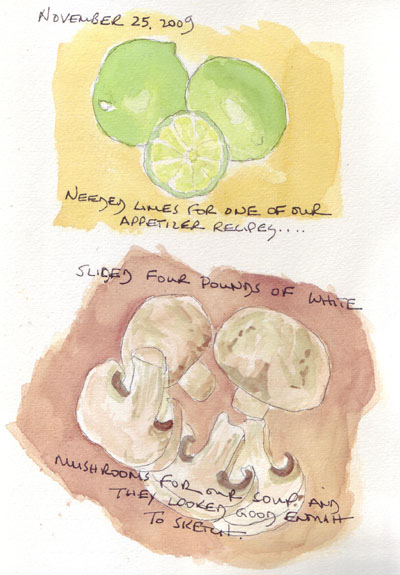 NOVEMBER 25, 2009
NEEDED LIMES FOR ONE OF OUR
APPETIZER RECIPES....
SLICED FOUR POUNDS OF WHITE
MUSHROOMS FOR OUR SOUP AND
THEY LOOKED GOOD ENOUGH
TO SKETCH.